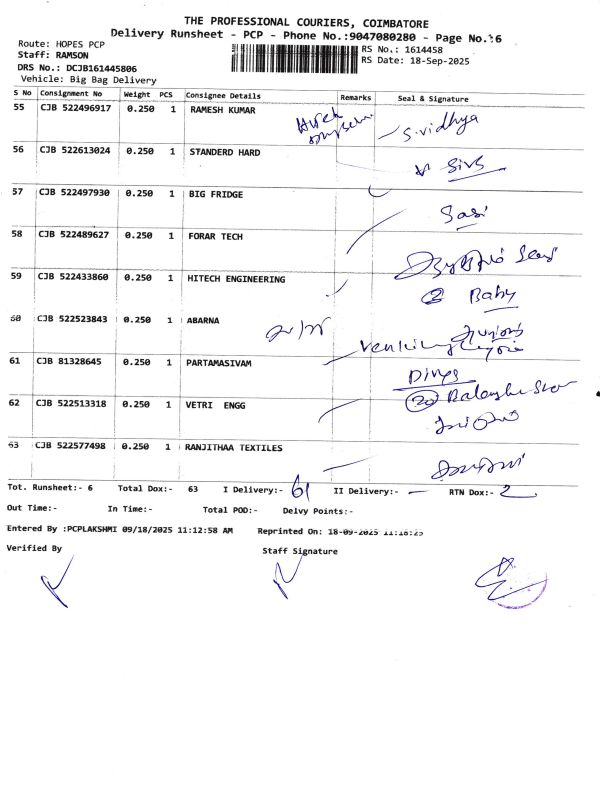 THE PROFESSIONAL COURIERS, COIMBATORE
Delivery Runsheet - PCP - Phone No.:9047080280 - Page No.:6
Route: HOPES PCP
Staff: RAMSON
DRS No.: DCJB161445806
Vehicle: Big Bag Delivery
RS No.: 1614458
RS Date: 18-Sep-2025
S No Consignment No Weight PCS Consignee Details Remarks Seal & Signature
55 CJB 522496917 0.250 1 RAMESH KUMAR S.vidhya
56 CJB 522613024 0.250 1 STANDERD HARD Siva
57 CJB 522497930 0.250 1 BIG FRIDGE Sasi
58 CJB 522489627 0.250 1 FORAR TECH
59 CJB 522433860 0.250 1 HITECH ENGINEERING Baby
60 CJB 522523843 0.250 1 ABARNA
61 CJB 81328645 0.250 1 PARTAMASIVAM Divya
62 CJB 522513318 0.250 1 VETRI ENGG
63 CJB 522577498 0.250 1 RANJITHAA TEXTILES
Tot. Runsheet:- 6 Total Dox:- 63 I Delivery:- 61 II Delivery:- — RTN Dox:- 2
Out Time:- In Time:- Total POD:- Delvy Points:-
Entered By :PCPLAKSHMI 09/18/2025 11:12:58 AM Reprinted On: 18-09-2025 11:18:25
Verified By Staff Signature